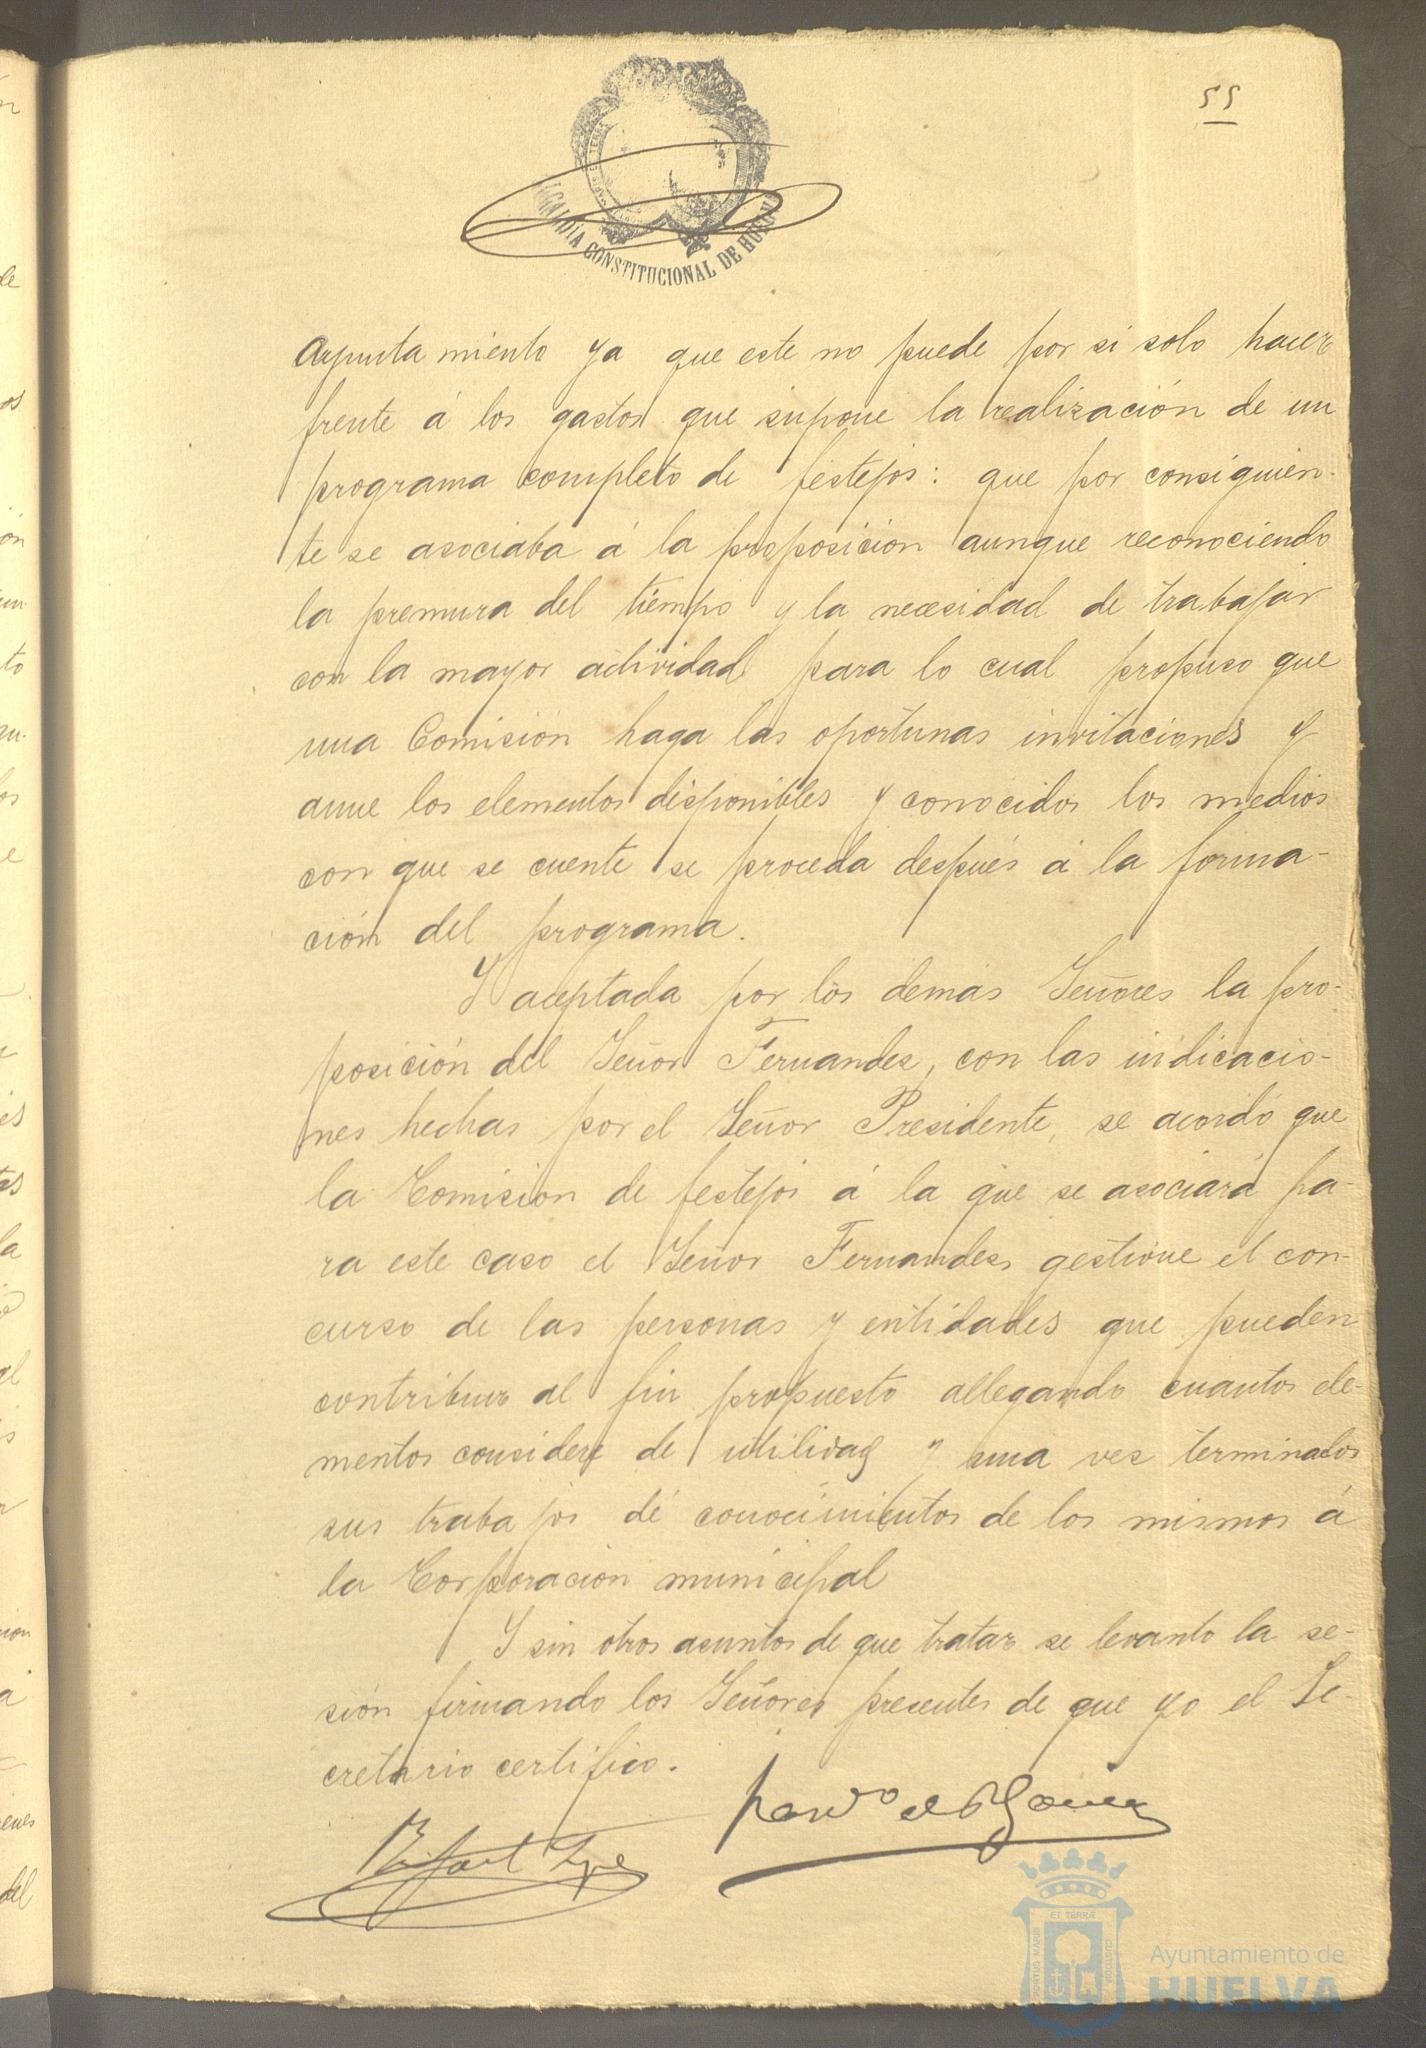 55
ALCALDIA CONSTITUCIONAL DE HUELVA
Ayuntamiento ya que este no puede por si solo hacer
frente á los gastos que supone la realización de un
programa completo de festejos: que por consiguien-
te se asociaba á la proposición aunque reconociendo
la premura del tiempo y la necesidad de trabajar
con la mayor actividad para lo cual propuso que
una Comisión haga las oportunas invitaciones y
aune los elementos disponibles y conocidos los medios
con que se cuente se proceda después á la forma-
ción del programa.
Y aceptada por los demás Señores la pro-
posición del Señor Fernandez, con las indicacio-
nes hechas por el Señor Presidente, se acordó que
la Comisión de festejos á la que se asociará pa-
ra este caso el Señor Fernandez gestione el con-
curso de las personas y entidades que pueden
contribuir al fin propuesto allegando cuantos ele-
mentos considere de utilidad y una vez terminados
sus trabajos dé conocimientos de los mismos á
la Corporación municipal
Y sin otros asuntos de que tratar se levantó la se-
sión firmando los Señores presentes de que yo el Se-
cretario certifico.
PORTUS MARIS ET TERRÆ CUSTODIA
Ayuntamiento de
HUELVA